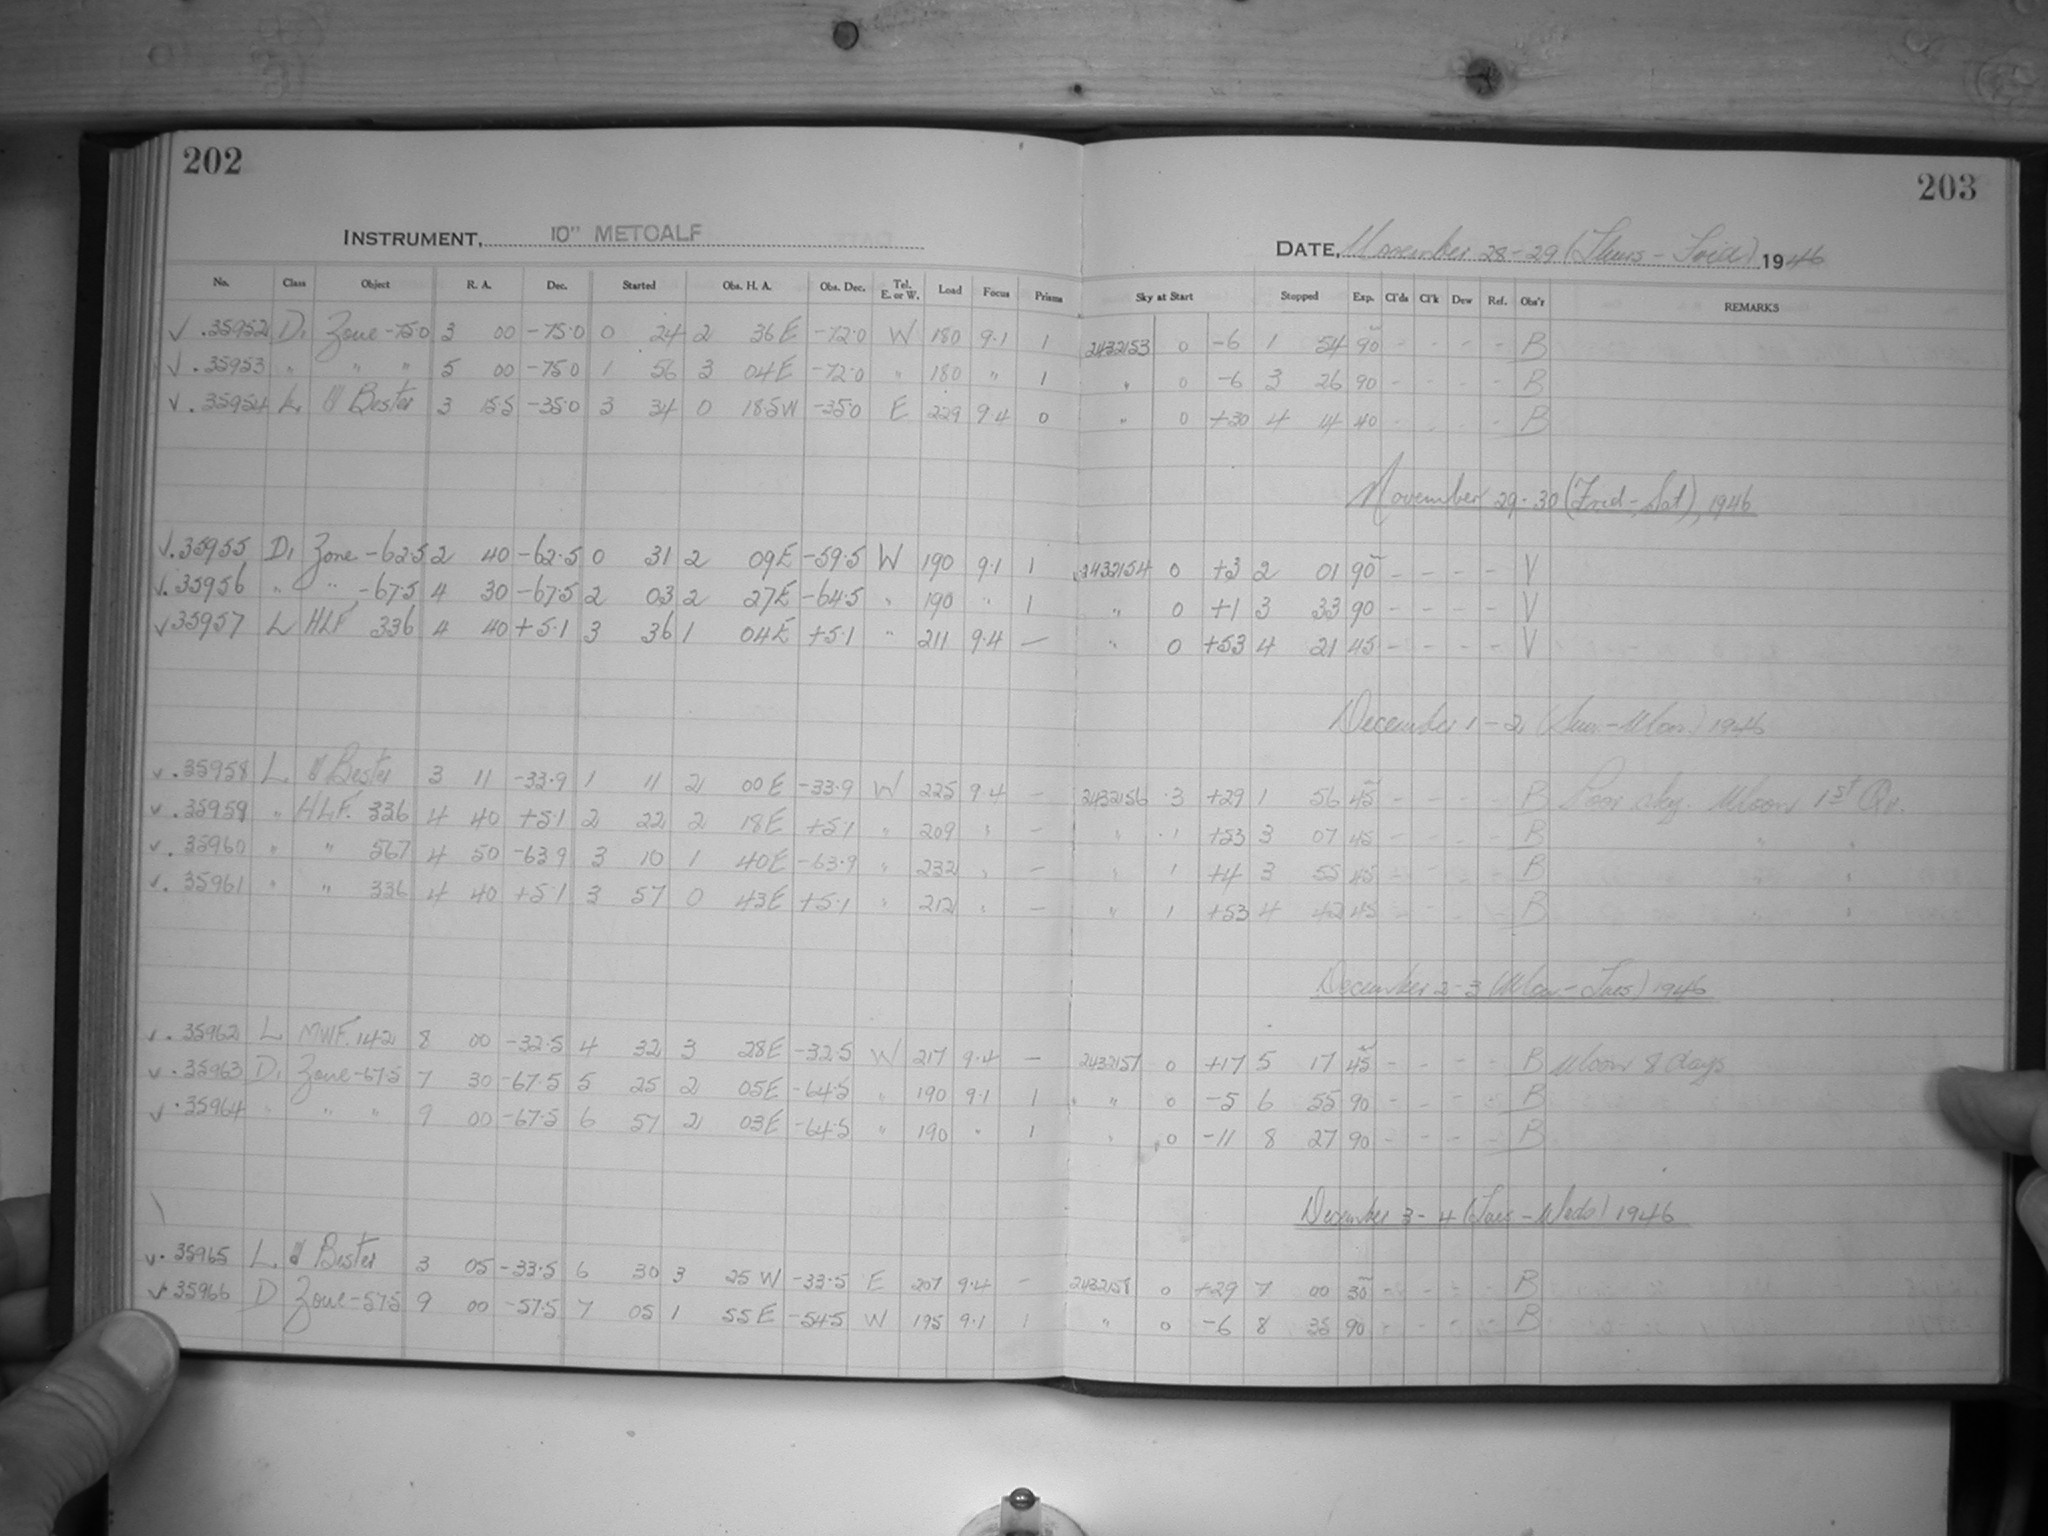 202
203
INSTRUMENT, 10" METCALF
DATE, November 28-29 (Thurs - Frid) 1946
No. Class Object R. A. Dec. Started Obs. H. A. Obs. Dec. Tel. E. or W. Load Focus Prisms Sky at Start Stopped Exp. Cl'ds Cl'k Dew Ref. Obs'r REMARKS
√ .35952 D1 Zone -75.0 3 00 -75.0 0 24 2 36 E -72.0 W 180 9.1 1 2432153 0 -6 1 54 90 - - - - B
√ .35953 " " " 5 00 -75.0 1 56 3 04E -72.0 " 180 " 1 " 0 -6 3 26 90 - - - - B
√ .35954 L. Bester 3 15.5 -35.0 3 34 0 18.5W -35.0 E 229 9.4 0 " 0 +30 4 14 40 - - - - B
November 29-30 (Frid-Sat), 1946
√ .35955 D1 Zone -62.5 2 40 -62.5 0 31 2 09E -59.5 W 190 9.1 1 2432154 0 +3 2 01 90 - - - - V
√ .35956 " " -67.5 4 30 -67.5 2 03 2 27E -64.5 " 190 " 1 " 0 +1 3 33 90 - - - - V
√ 35957 L HLF 336 4 40 +5.1 3 36 1 04E +5.1 " 211 9.4 — " 0 +53 4 21 45 - - - - V
December 1-2, (Sun.-Mon.) 1946
√ .35958 L. Bester 3 11 -33.9 1 11 2 00 E -33.9 W 225 9.4 - 2432156 .3 +29 1 56 45 - - - - B Poor sky. Moon 1st Qr.
√ .35959 " HLF. 336 4 40 +5.1 2 22 2 18E +5.1 " 209 " - " .1 +53 3 07 45 - - - - B " "
√ .35960 " " 567 4 50 -63.9 3 10 1 40E -63.9 " 232 " - " 1 +4 3 55 45 - - - - B "
√ .35961 " " 336 4 40 +5.1 3 57 0 43E +5.1 " 212 " - " 1 +53 4 42 45 - - - - B " "
December 2-3 (Mon.-Tues) 1946
√ .35962 L MWF. 142 8 00 -32.5 4 32 3 28E -32.5 W 217 9.4 — 2432157 0 +17 5 17 45 - - - - B Moon 8 days
√ .35963 D1 Zone -67.5 7 30 -67.5 5 25 2 05E -64.5 " 190 9.1 1 " 0 -5 6 55 90 - - - - B
√ .35964 " " " 9 00 -67.5 6 57 2 03E -64.5 " 190 " 1 " 0 -11 8 27 90 - - - - B
December 3-4 (Tues-Weds) 1946
√ .35965 L. Bester 3 05 -33.5 6 30 3 25 W -33.5 E 207 9.4 - 2432158 0 +29 7 00 30 - - - - B
√ .35966 D Zone -57.5 9 00 -57.5 7 05 1 55 E -54.5 W 195 9.1 1 " 0 -6 8 35 90 - - - - B